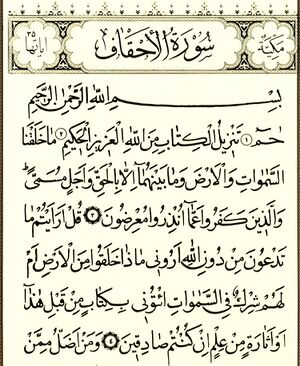 مكية
سورة الأحقاف
آياتها ٣٥
بِسْمِ اللّٰهِ الرَّحْمٰنِ الرَّحِيمِ
حٰمٓ ﴿١﴾ تَنْزِيلُ الْكِتَابِ مِنَ اللّٰهِ الْعَزِيزِ الْحَكِيمِ ﴿٢﴾ مَا خَلَقْنَا
السَّمٰوَاتِ وَالْاَرْضَ وَمَا بَيْنَهُمَٓا اِلَّا بِالْحَقِّ وَاَجَلٍ مُسَمًّىۜ
وَالَّذِينَ كَفَرُوا عَمَّٓا اُنْذِرُوا مُعْرِضُونَ ﴿٣﴾ قُلْ اَرَاَيْتُمْ مَا
تَدْعُونَ مِنْ دُونِ اللّٰهِ اَرُونِي مَاذَا خَلَقُوا مِنَ الْاَرْضِ اَمْ
لَهُمْ شِرْكٌ فِي السَّمٰوَاتِ اِئْتُونِي بِكِتَابٍ مِنْ قَبْلِ هٰذَٓا
اَوْ اَثَارَةٍ مِنْ عِلْمٍ اِنْ كُنْتُمْ صَادِقِينَ ﴿٤﴾ وَمَنْ اَضَلُّ مِمَّنْ